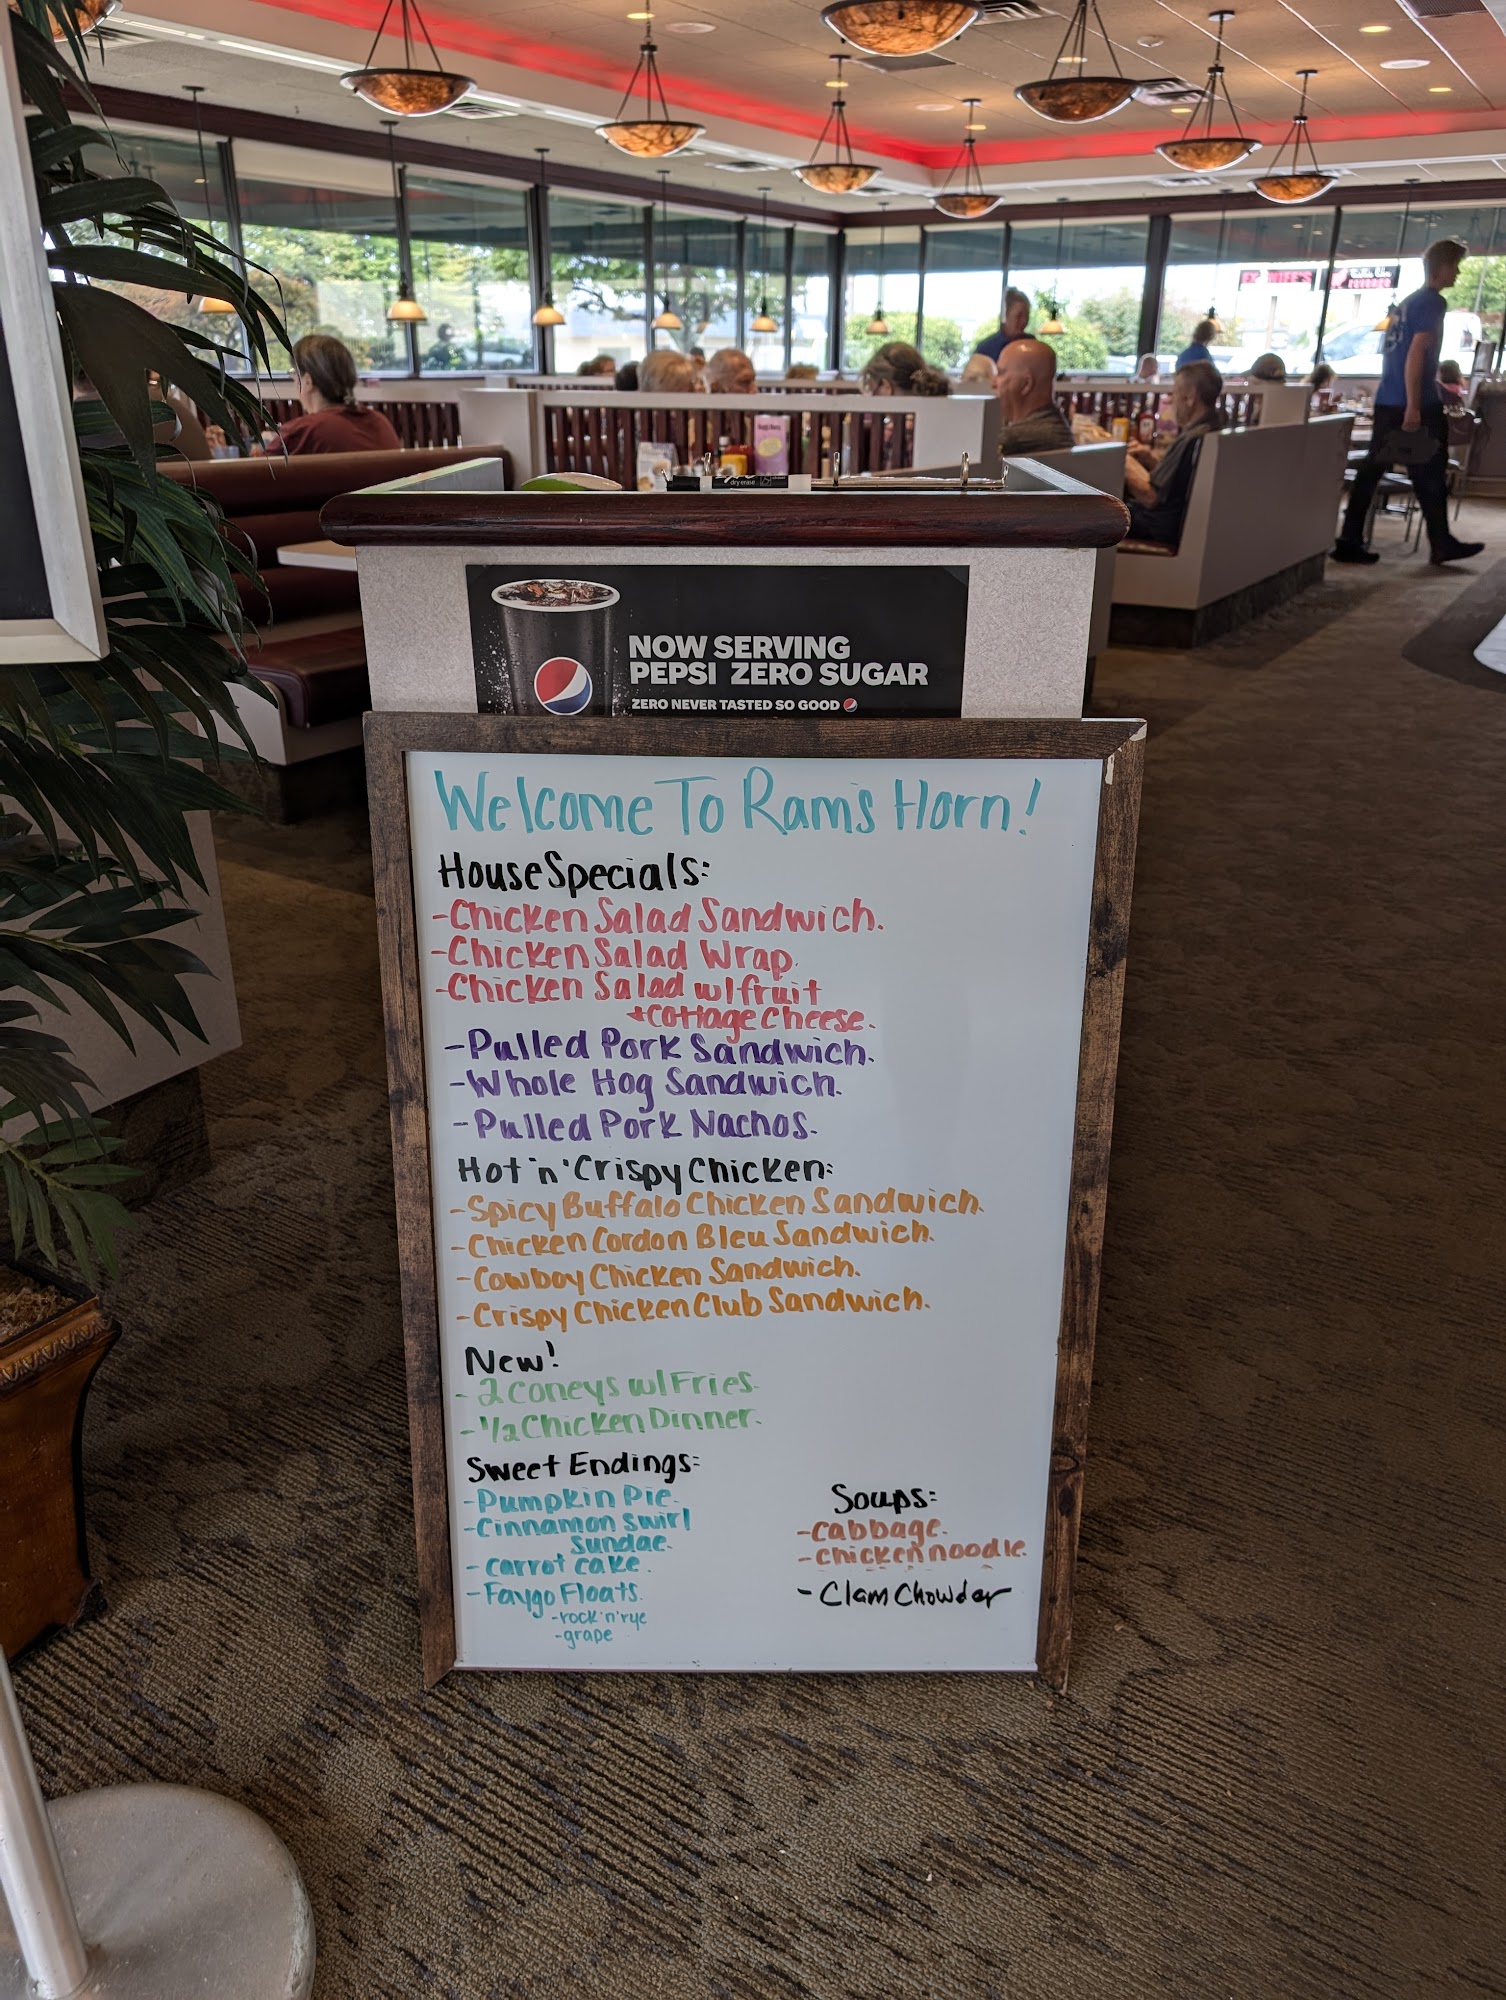 dry erase
NOW SERVING
PEPSI ZERO SUGAR
ZERO NEVER TASTED SO GOOD
Welcome To Ram's Horn!
House Specials:
-Chicken Salad Sandwich.
-Chicken Salad Wrap.
-Chicken Salad w/fruit
+Cottage Cheese.
-Pulled Pork Sandwich.
-Whole Hog Sandwich.
-Pulled Pork Nachos.
Hot 'n' Crispy Chicken:
-Spicy Buffalo Chicken Sandwich.
-Chicken Cordon Bleu Sandwich.
-Cowboy Chicken Sandwich.
-Crispy Chicken Club Sandwich.
New!
-2 Coneys w/Fries.
-1/2 Chicken Dinner.
Sweet Endings:
-Pumpkin Pie.
-Cinnamon Swirl
Sundae.
-Carrot Cake.
-Faygo Floats.
-rock'n'rye
-grape
Soups:
-Cabbage.
-Chicken noodle.
-Clam Chowder